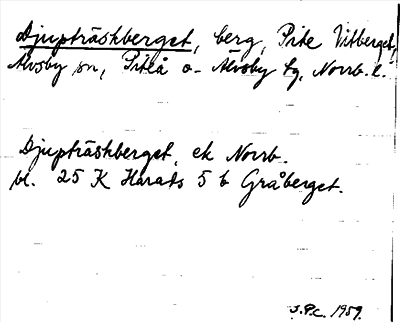 Djupträskberget, berg, Pite Vitberget,
Älvsby sn, Piteå o. Älvsby tg, Norrb. l.
Djupträskberget, ek Norrb.
bl. 25 K Harads 5 b Gråberget.
J.P.C. 1959.